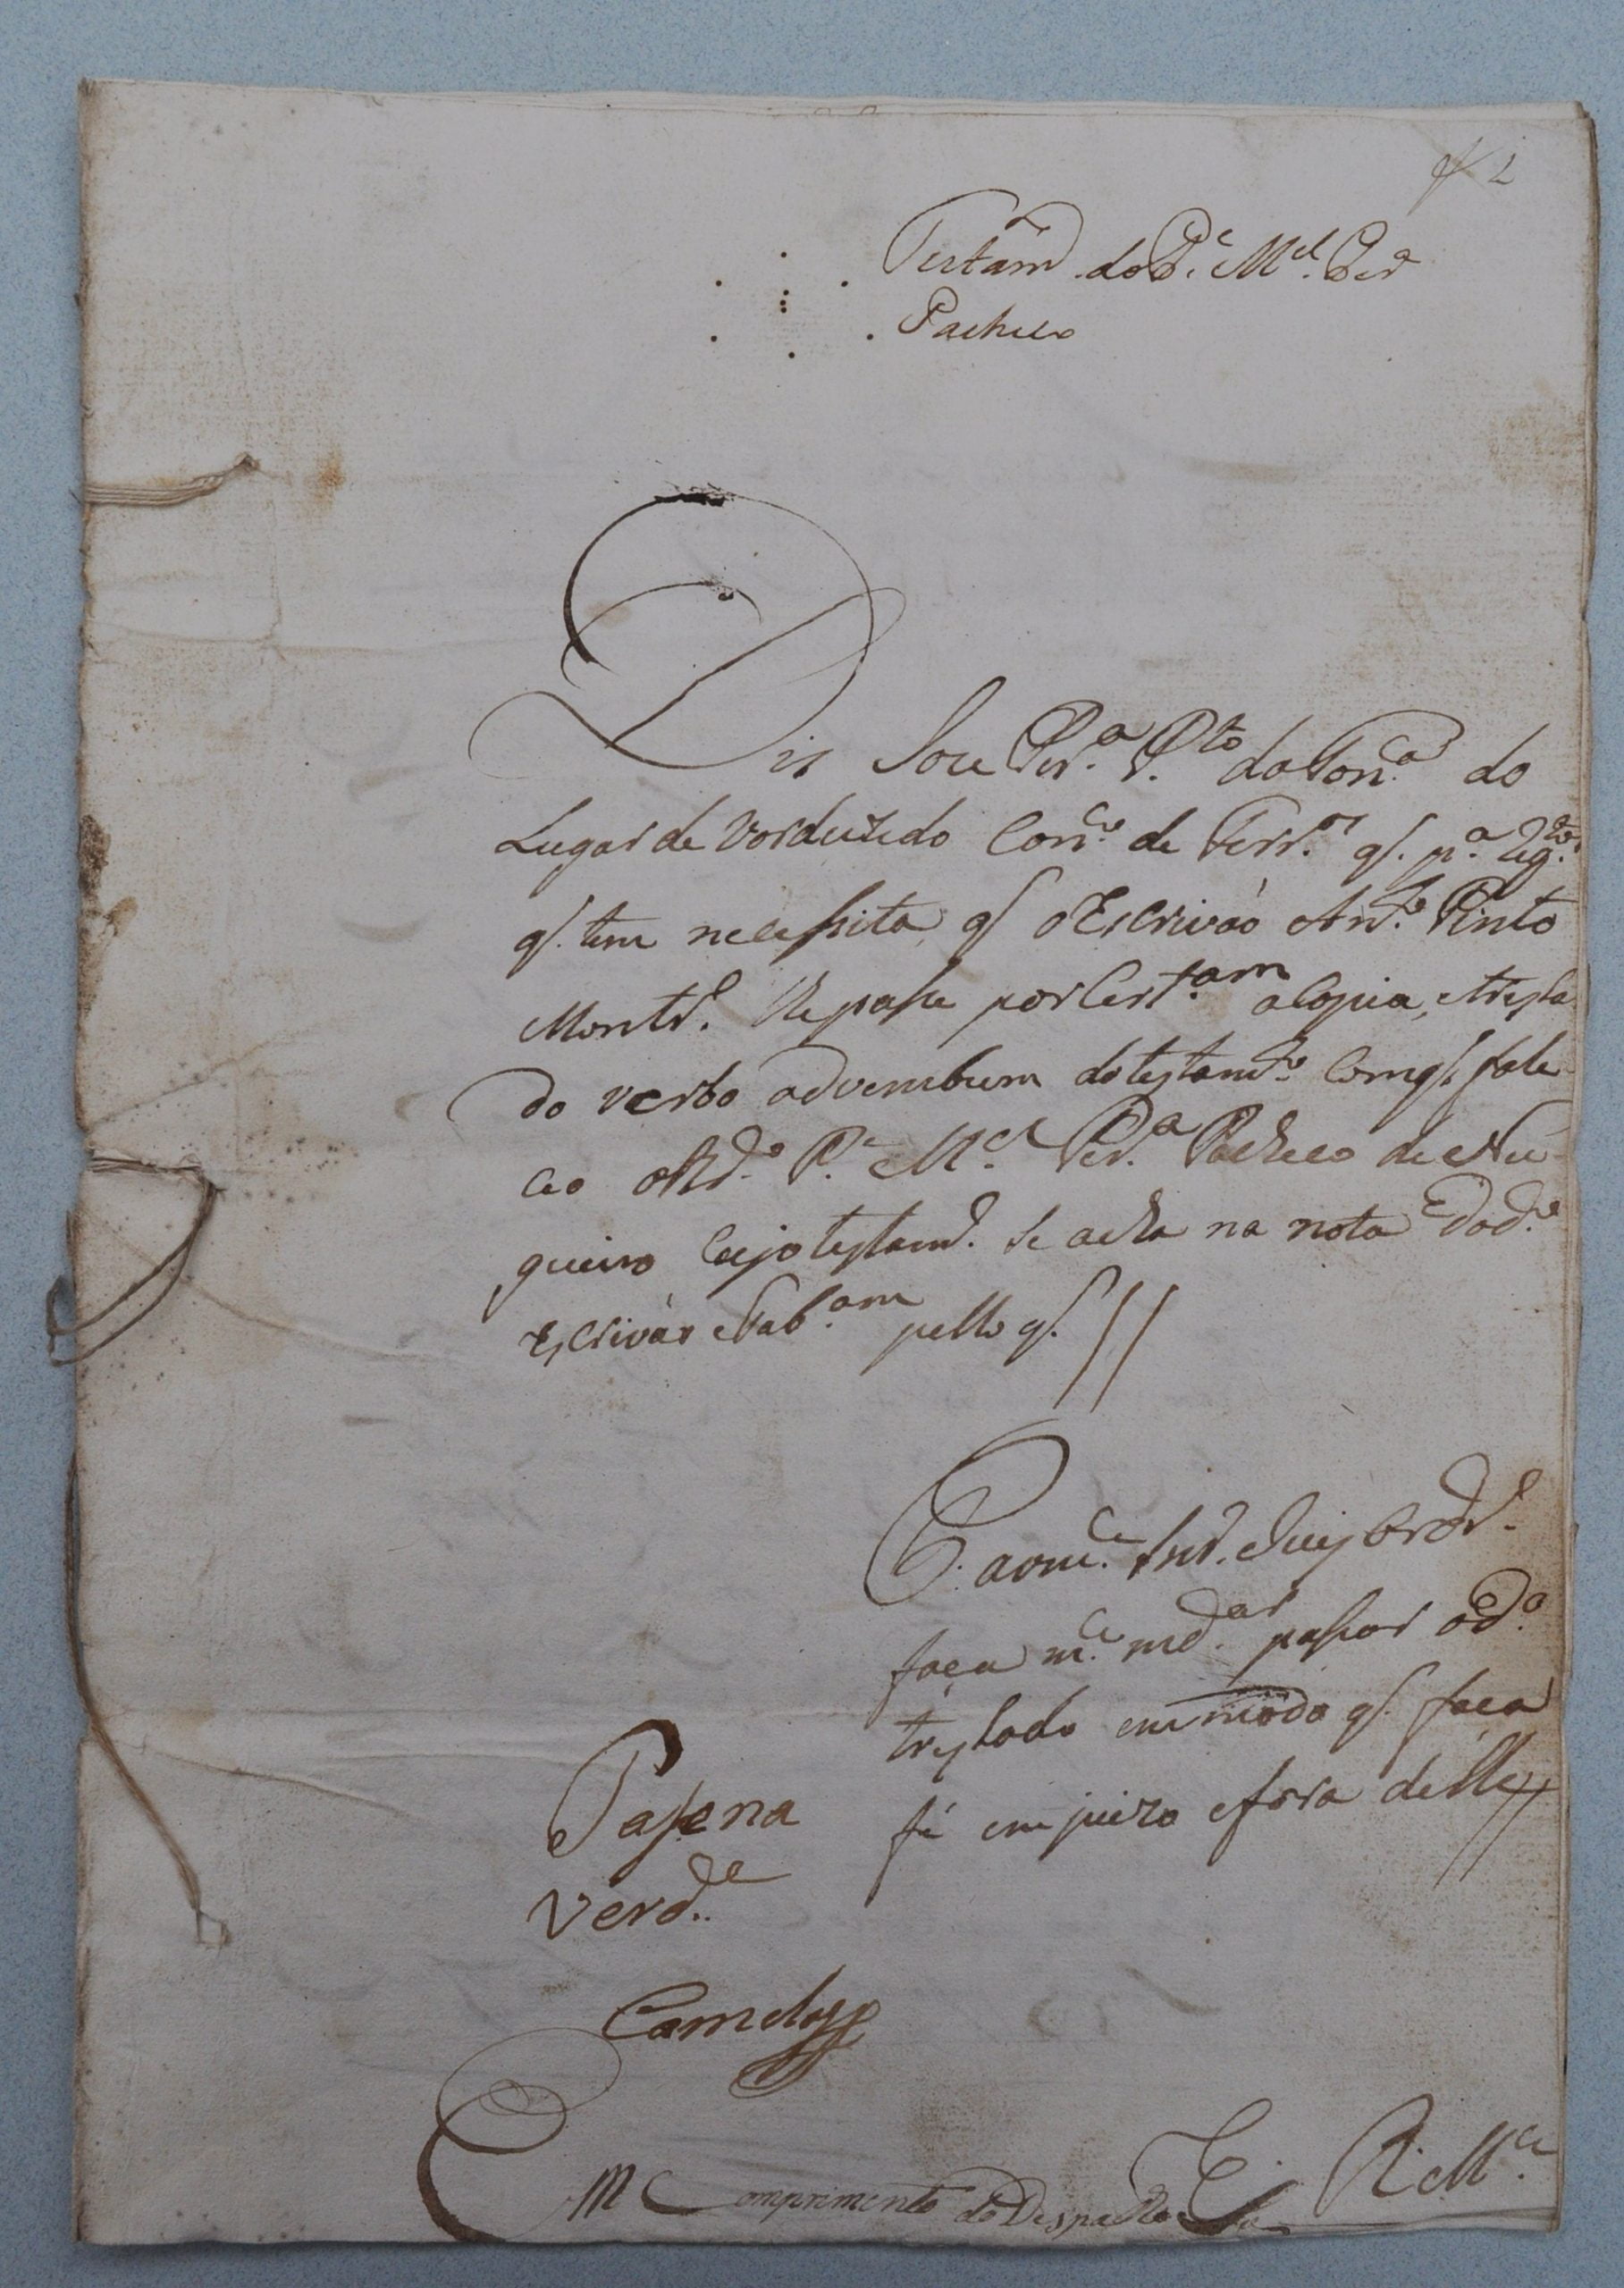 Testam.to do P.e M.el Per.a
Pacheco
Dis Joze Per.a P.to da Fon.ca do
Lugar de Vordeizedo Con.co de Ferr.os q. p.a Req.tos
q. tem necessita q o Escrivaõ Ant.o Pinto
Montr.o lhe passe por Certam a Copia, e tresla
do verbo adverubum do testam.to com q. fale
ceo o Rd.o P.e M.el Per.a Pacheco de No
gueiro Cujo testam.to se acha na nota do d.o
Escrivaõ e Tab.am pello q. //
P. a vm.ce Snr. Juiz Ord.ro
faça m.ce md.ar passar o d.o
treslado em modo q. faça
fé em juizo e fora delle //
Passe na
verd.e
Camelo
E. R. M.ce
Em Comprimento do Despacho